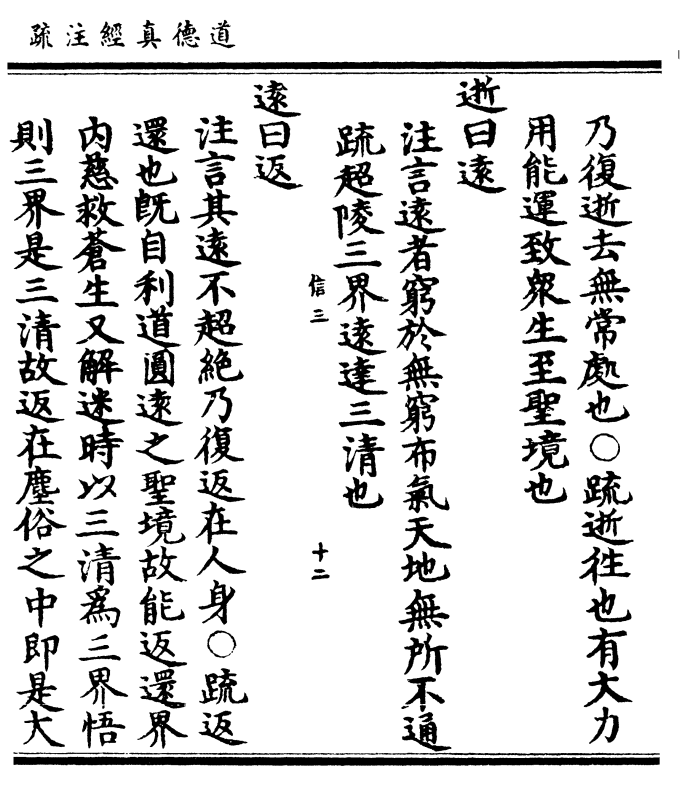 道德真經注疏
乃復逝去無常處也○疏逝徃也有大力
用能運致衆生至聖境也
逝曰遠
注言遠者窮於無窮布氣天地無所不通
疏超陵三界遠達三清也
信三 十二
遠曰返
注言其遠不超絶乃復返在人身○疏返
還也旣自利道圓遠之聖境故能返還界
内慈救蒼生又解迷時以三清爲三界悟
則三界是三清故返在塵俗之中即是大